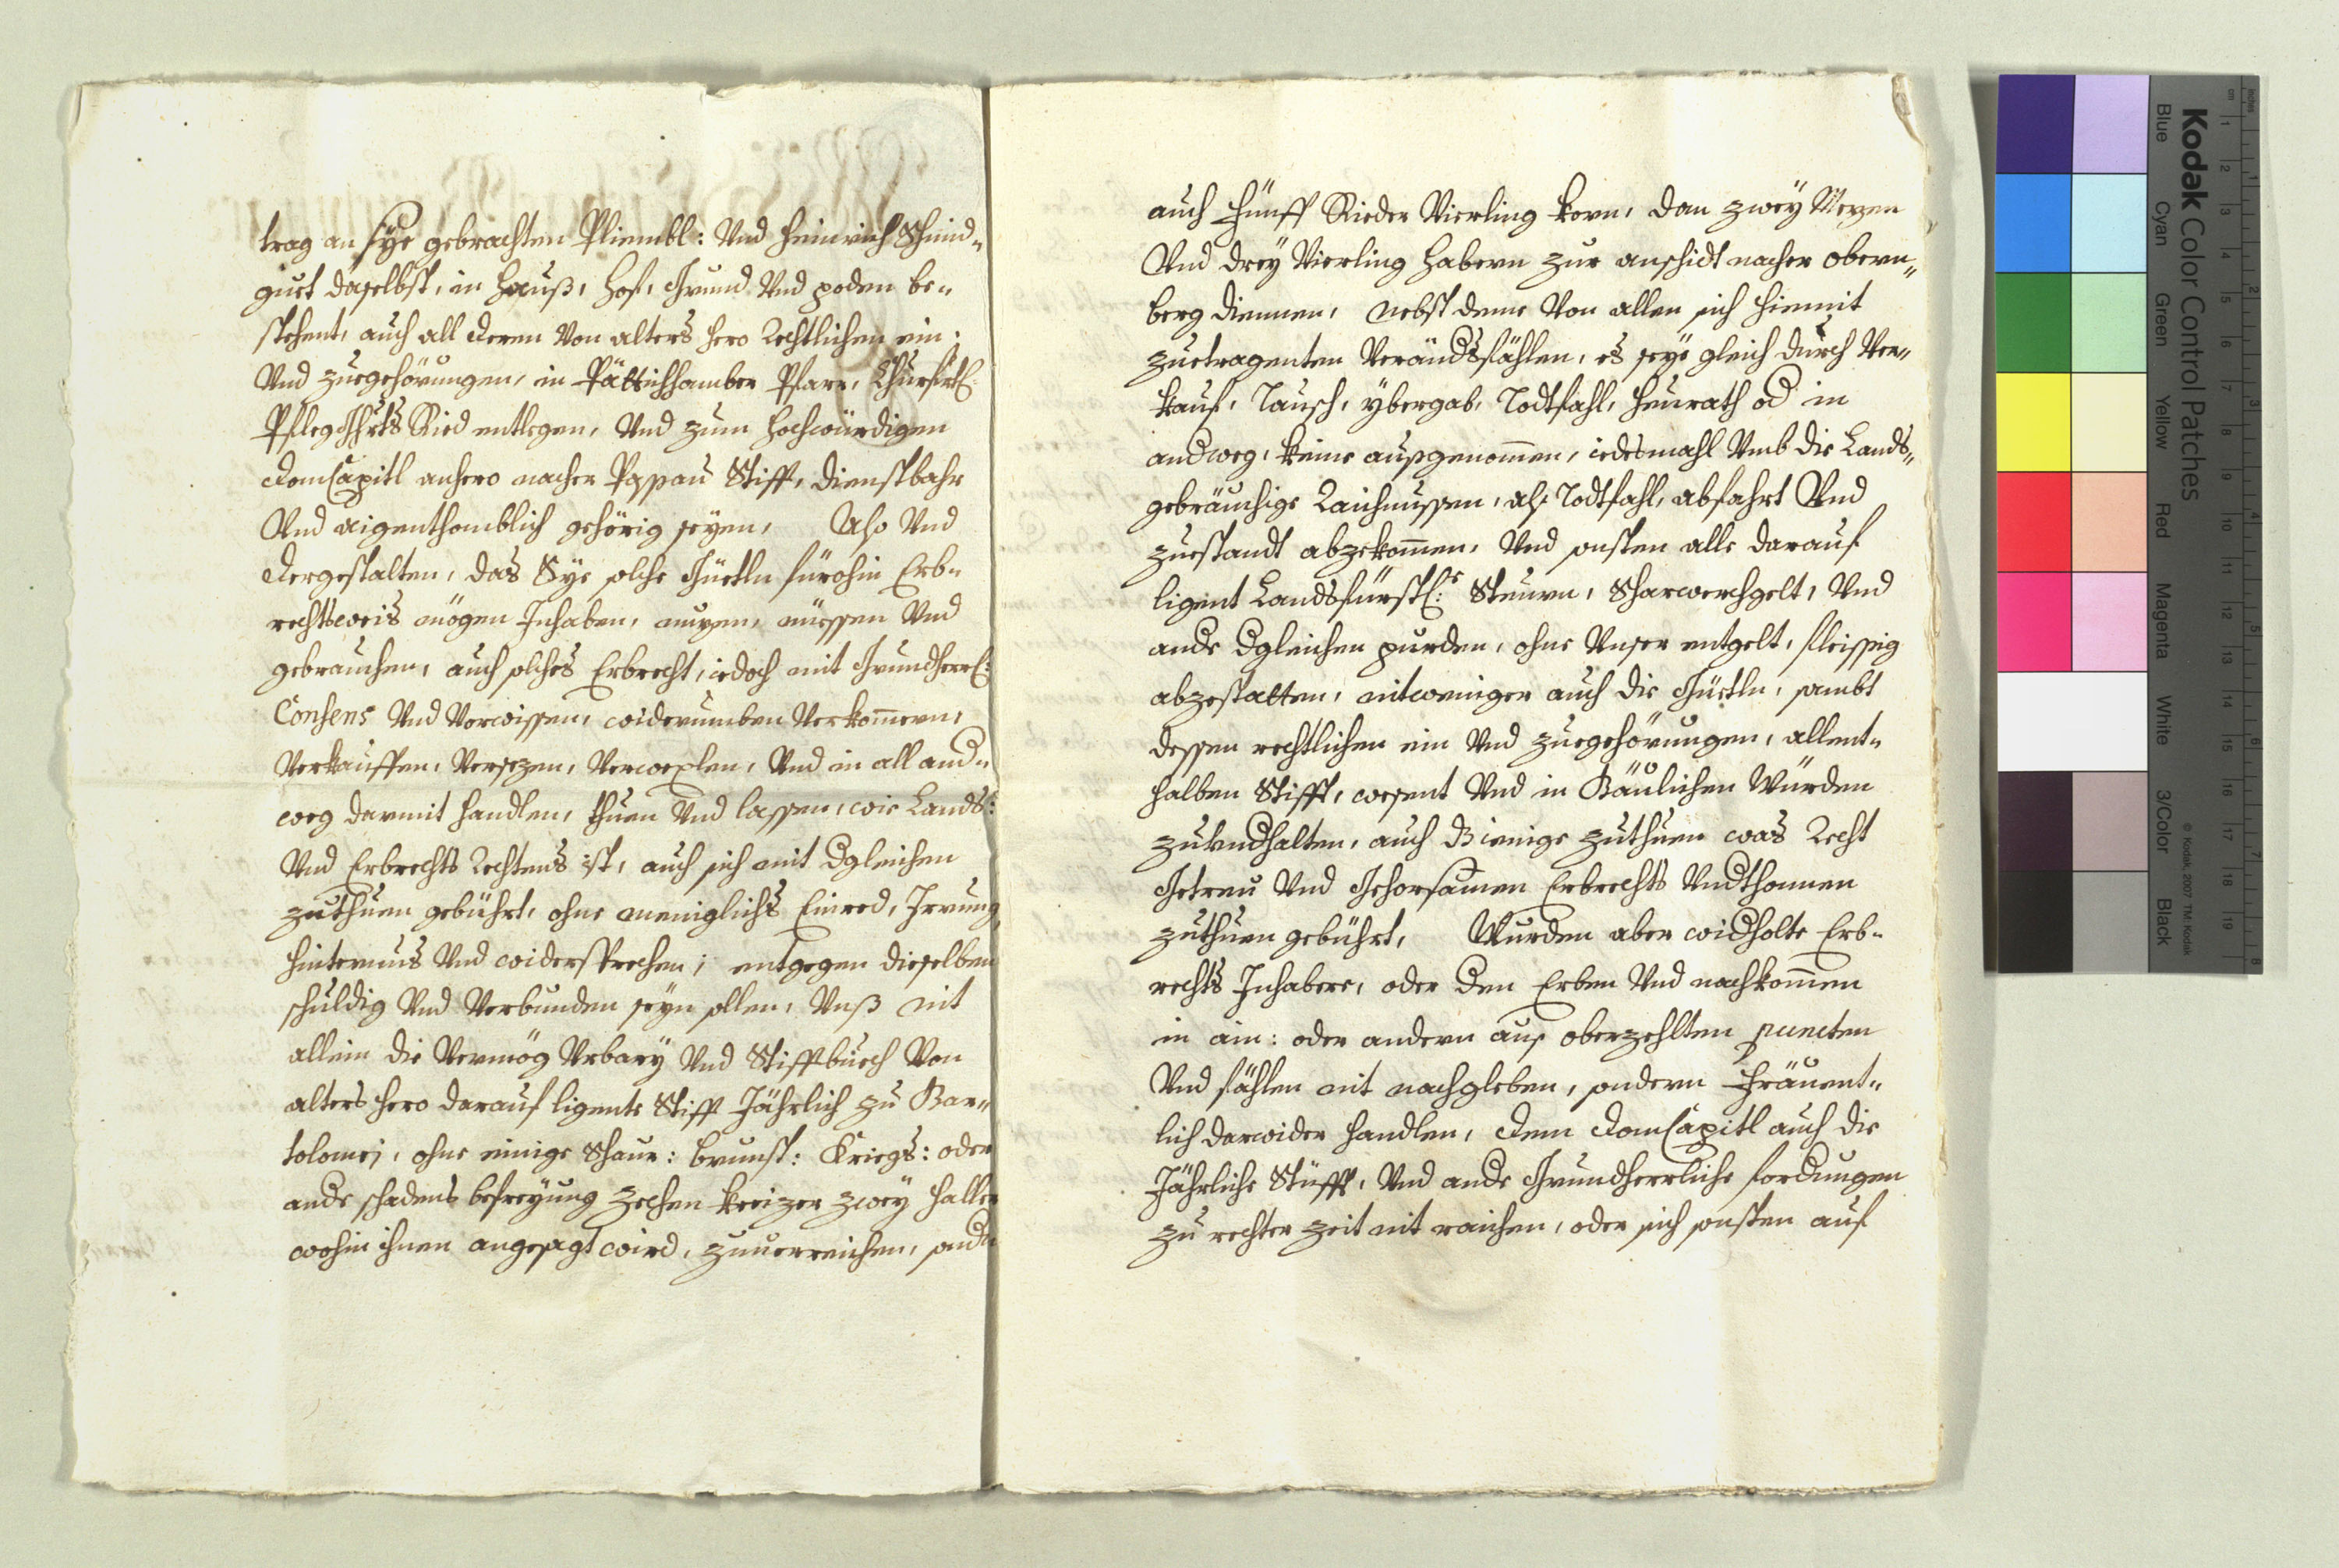 trag an sye gebrachten Pliembl: Und Heinrich Schmid„
guet daselbst, in Hauß, Hof, Grund Und poden be„
stehent, auch all deren Von alters hero Rechtlichen ein:
Und zuegehörungen, in Pättichhamber Pfarr, Churfrtl:
Pflegghrts Ried entlegen, Und zum Hochwürdigen
DomCapitl anhero nacher Passau Stifft, dienstbahr
Und aigenthomblich gehörig seyen, Also Und
dergestalten, das Sye solche Güetln fürohin Erb„
rechtsweis mögen Inhaben, nuzen, niessen Und
gebrauchen, auch solches Erbrecht, iedoch mit Grundherrl:
Consens Und Vorwissen, widerumben Verkommern,
Verkauffen, Versezen, Verwexlen, Und in all and„
weg darmit handlen, thuen Und lassen, wie Lands:
Und Erbrechts Rechtens ist, auch sich mit dgleichen
zuthuen gebührt, ohne meniglichs Einred, Irrung,
hinternus Und widersprechen; entgegen dieselben
schuldig Und Verbunden seyn sollen, Unß nit
allein die Vermög Urbary Und Stifftbuech Von
alters hero darauf ligente Stifft Jährlich zu Bar„
tolomei, ohne einige Schaur: brunst: Kriegs: oder
ande schadens befreyung zechen kreizer zwey haller
wohin ihnen angesagt wird, zuuerreichen, sondn
auch Fünff Rieder Vierling korn, dan zwey Mezen
Und drey Vierling habern zur anschidt nacher obern„
berg diennen, Nebst deme Von allen sich hiemit
zuetragenten Verändsfählen, es seye gleich durch Ver„
kauf, Tausch, ybergab, Todtfahl, Heurath od in
andweg, keine außgenommen, iedesmahl Umb die Lands„
gebräuchige Raichnussen, als Todtfahl, abfahrt Und
zuestandt abzekommen, Und sonsten alle darauf
ligent Landsfürstl:e Steurn, Scharwerchgelt, Und
ande dgleichen purden, ohne Unser entgelt, fleissig
abzestatten, nitweniger auch die Güetln, sambt
dessen rechtlichen ein Und zuegehörungen, allent„
halben Stifft, wesent Und in Bäulichen Würden
zuundhalten, auch dß ienige zuthuen was Recht
Getreu Und Gehorsamen Erbrechts Undthonnen
zuthuen gebührt, Wurden aber widholte Erb„
rechts Inhabere, oder den Erben Und nachkommen
in ain: oder andern aus oberzehlten puncten
Und fählen nit nachgleben, sondern Fräuent„
lich darwider handlen, dem DomCapitl auch die
Jährliche Stüfft, Und ande Grundherrliche fordungen
zu rechter zeit nit raichen, oder sich sonsten auf
Kodak Color Control Patches
Blue Cyan Green Yellow Red Magenta White 3/Color Black
© Kodak, 2007 TM: Kodak